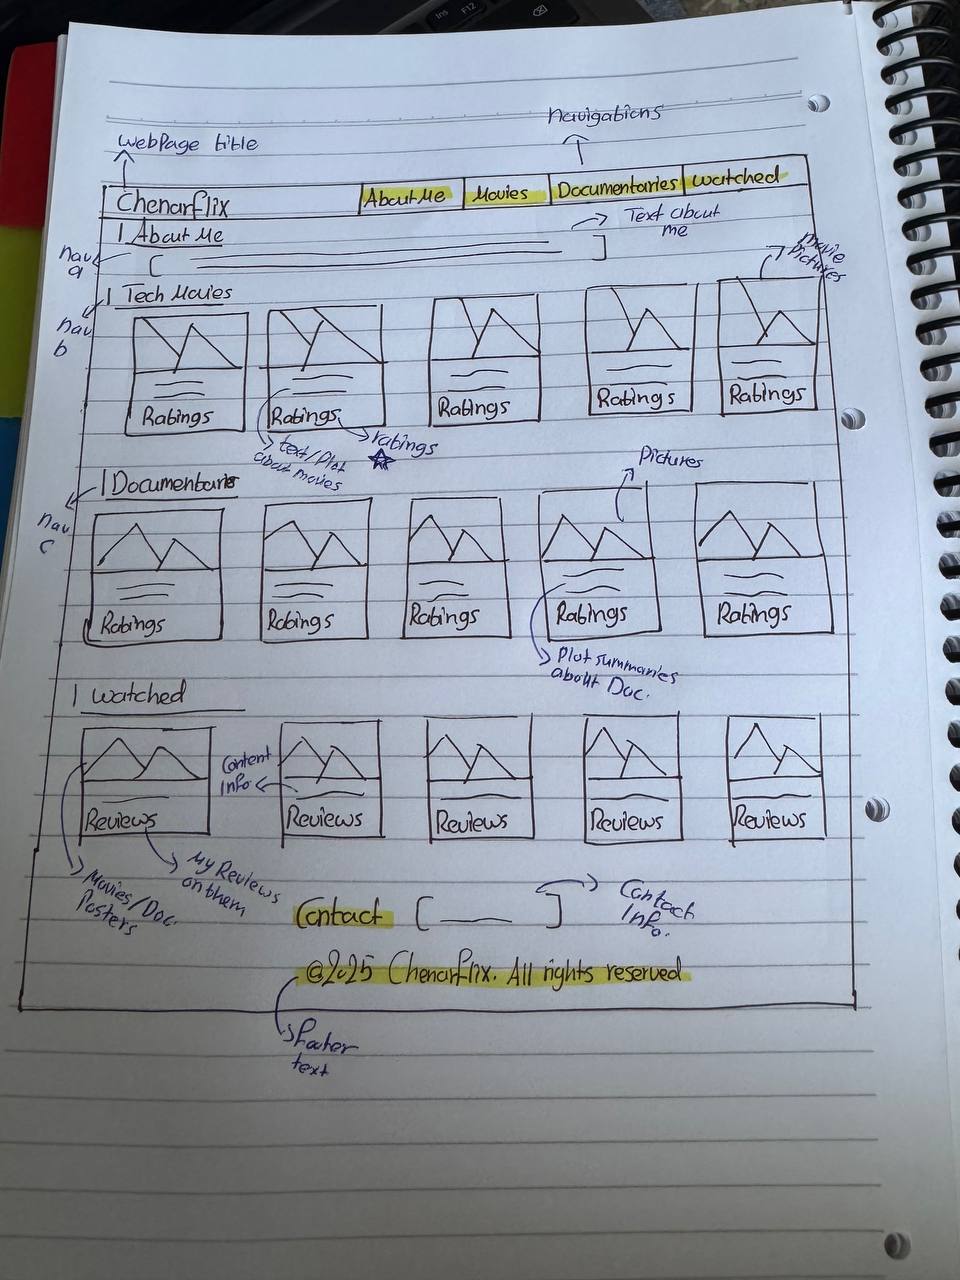 Ins
F12
navigations
WebPage title
Chenarflix
About Me
Movies
Documentaries
Watched
1 About Me
Text about
me
nav
a
movie
Pictures
1 Tech Movies
nav
b
Ratings
Ratings
Ratings
Ratings
Ratings
ratings
text/Plot
about movies
Pictures
1 Documentaries
nav
c
Ratings
Ratings
Ratings
Ratings
Ratings
Plot summaries
about Doc.
1 Watched
Content
Info
Reviews
Reviews
Reviews
Reviews
Reviews
My Reviews
on them
Movies/Doc
Posters
Contact [ ]
Contact
Info.
@2025 Chenarflix. All rights reserved
Footer
text